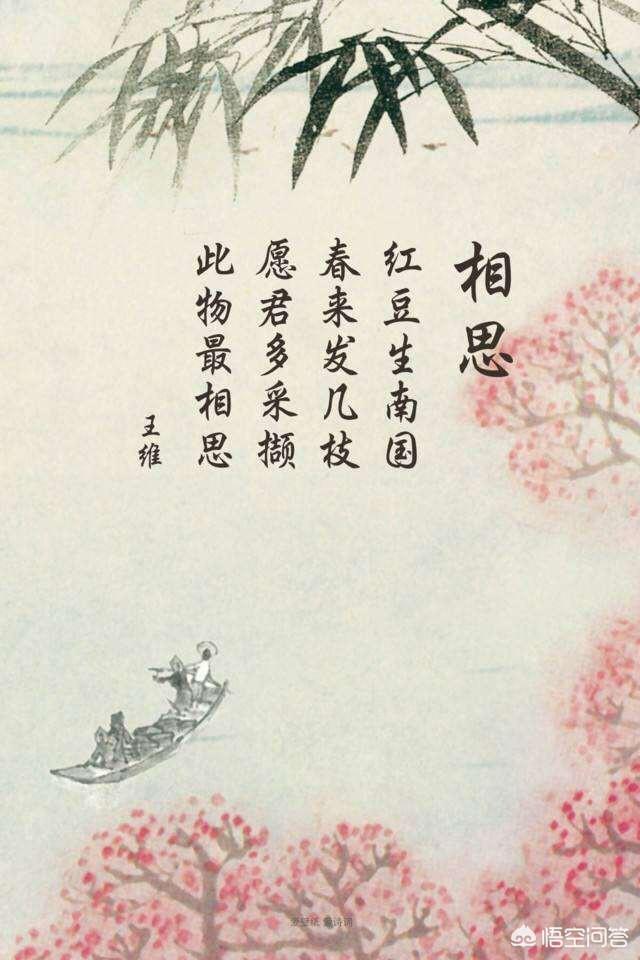 相思
红豆生南国
春来发几枝
愿君多采撷
此物最相思
王维
爱壁纸 爱诗词
悟空问答